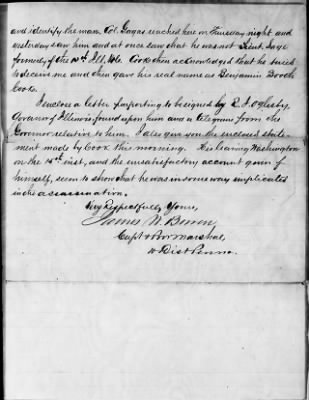 and identify the man. Col. Gagas reached here on Thursday night and
yesterday saw him and at once saw that he was not Lieut. Gage
formerly of the 10th Ill. Vols. Cook then acknowledged that he tried
to deceive me and then gave his real name as Benjamin Booth
Cook.
I enclose a letter purporting to be signed by R. J. Oglesby,
Governor of Illinois, found upon him and a telegram from the
Governor relative to him. I also give you the enclosed state-
ment made by Cook this morning. His leaving Washington
on the 15th inst, and the unsatisfactory account given of
himself, seem to show that he was in some way implicated
in the assassination.
Very Respectfully, Yours,
James
Capt & Pro. Marshal,
W Dist Penna.